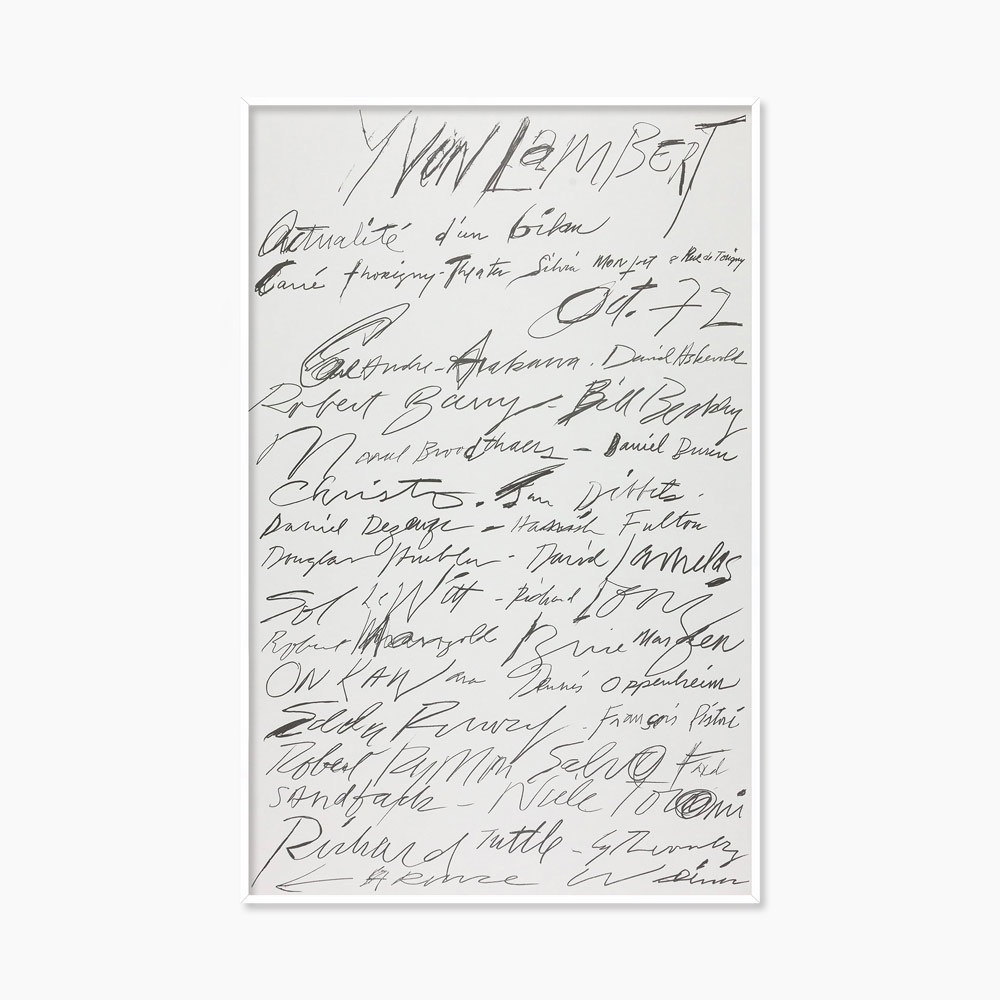 YVON LAMBERT
Actualité d'un bilan
Carré Thorigny - Theater Silvia Monfort
Oct. 72
Carl Andre - Arakawa. David Askevold
Robert Barry - Bill Beckley
Marcel Broodthaers - Daniel Buren
Christo. Jan Dibbets.
Daniel Dezeuze - Hamish Fulton
Douglas Huebler - David Lamelas
Sol LeWitt - Richard Long
Robert Mangold Brice Marden
ON KAWara Dennis Oppenheim
Edda Renouf. François Ristori
Robert Ryman Salvo Fred
SAndback - Niele Toroni
Richard Tuttle - Cy Twombly
LAwrence Weiner